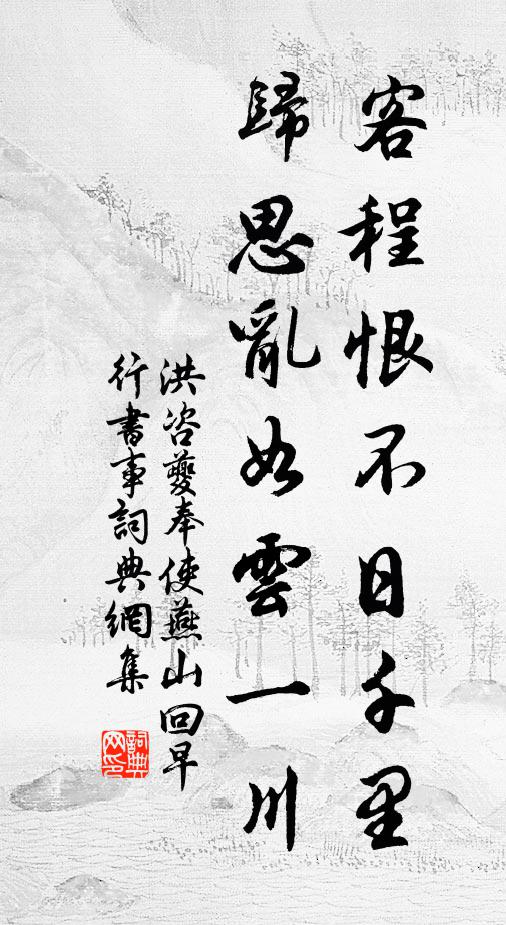 客程恨不日千里
歸思亂如雲一川
洪咨夔奉使燕山回早
行書事詞典網集
詞典
网